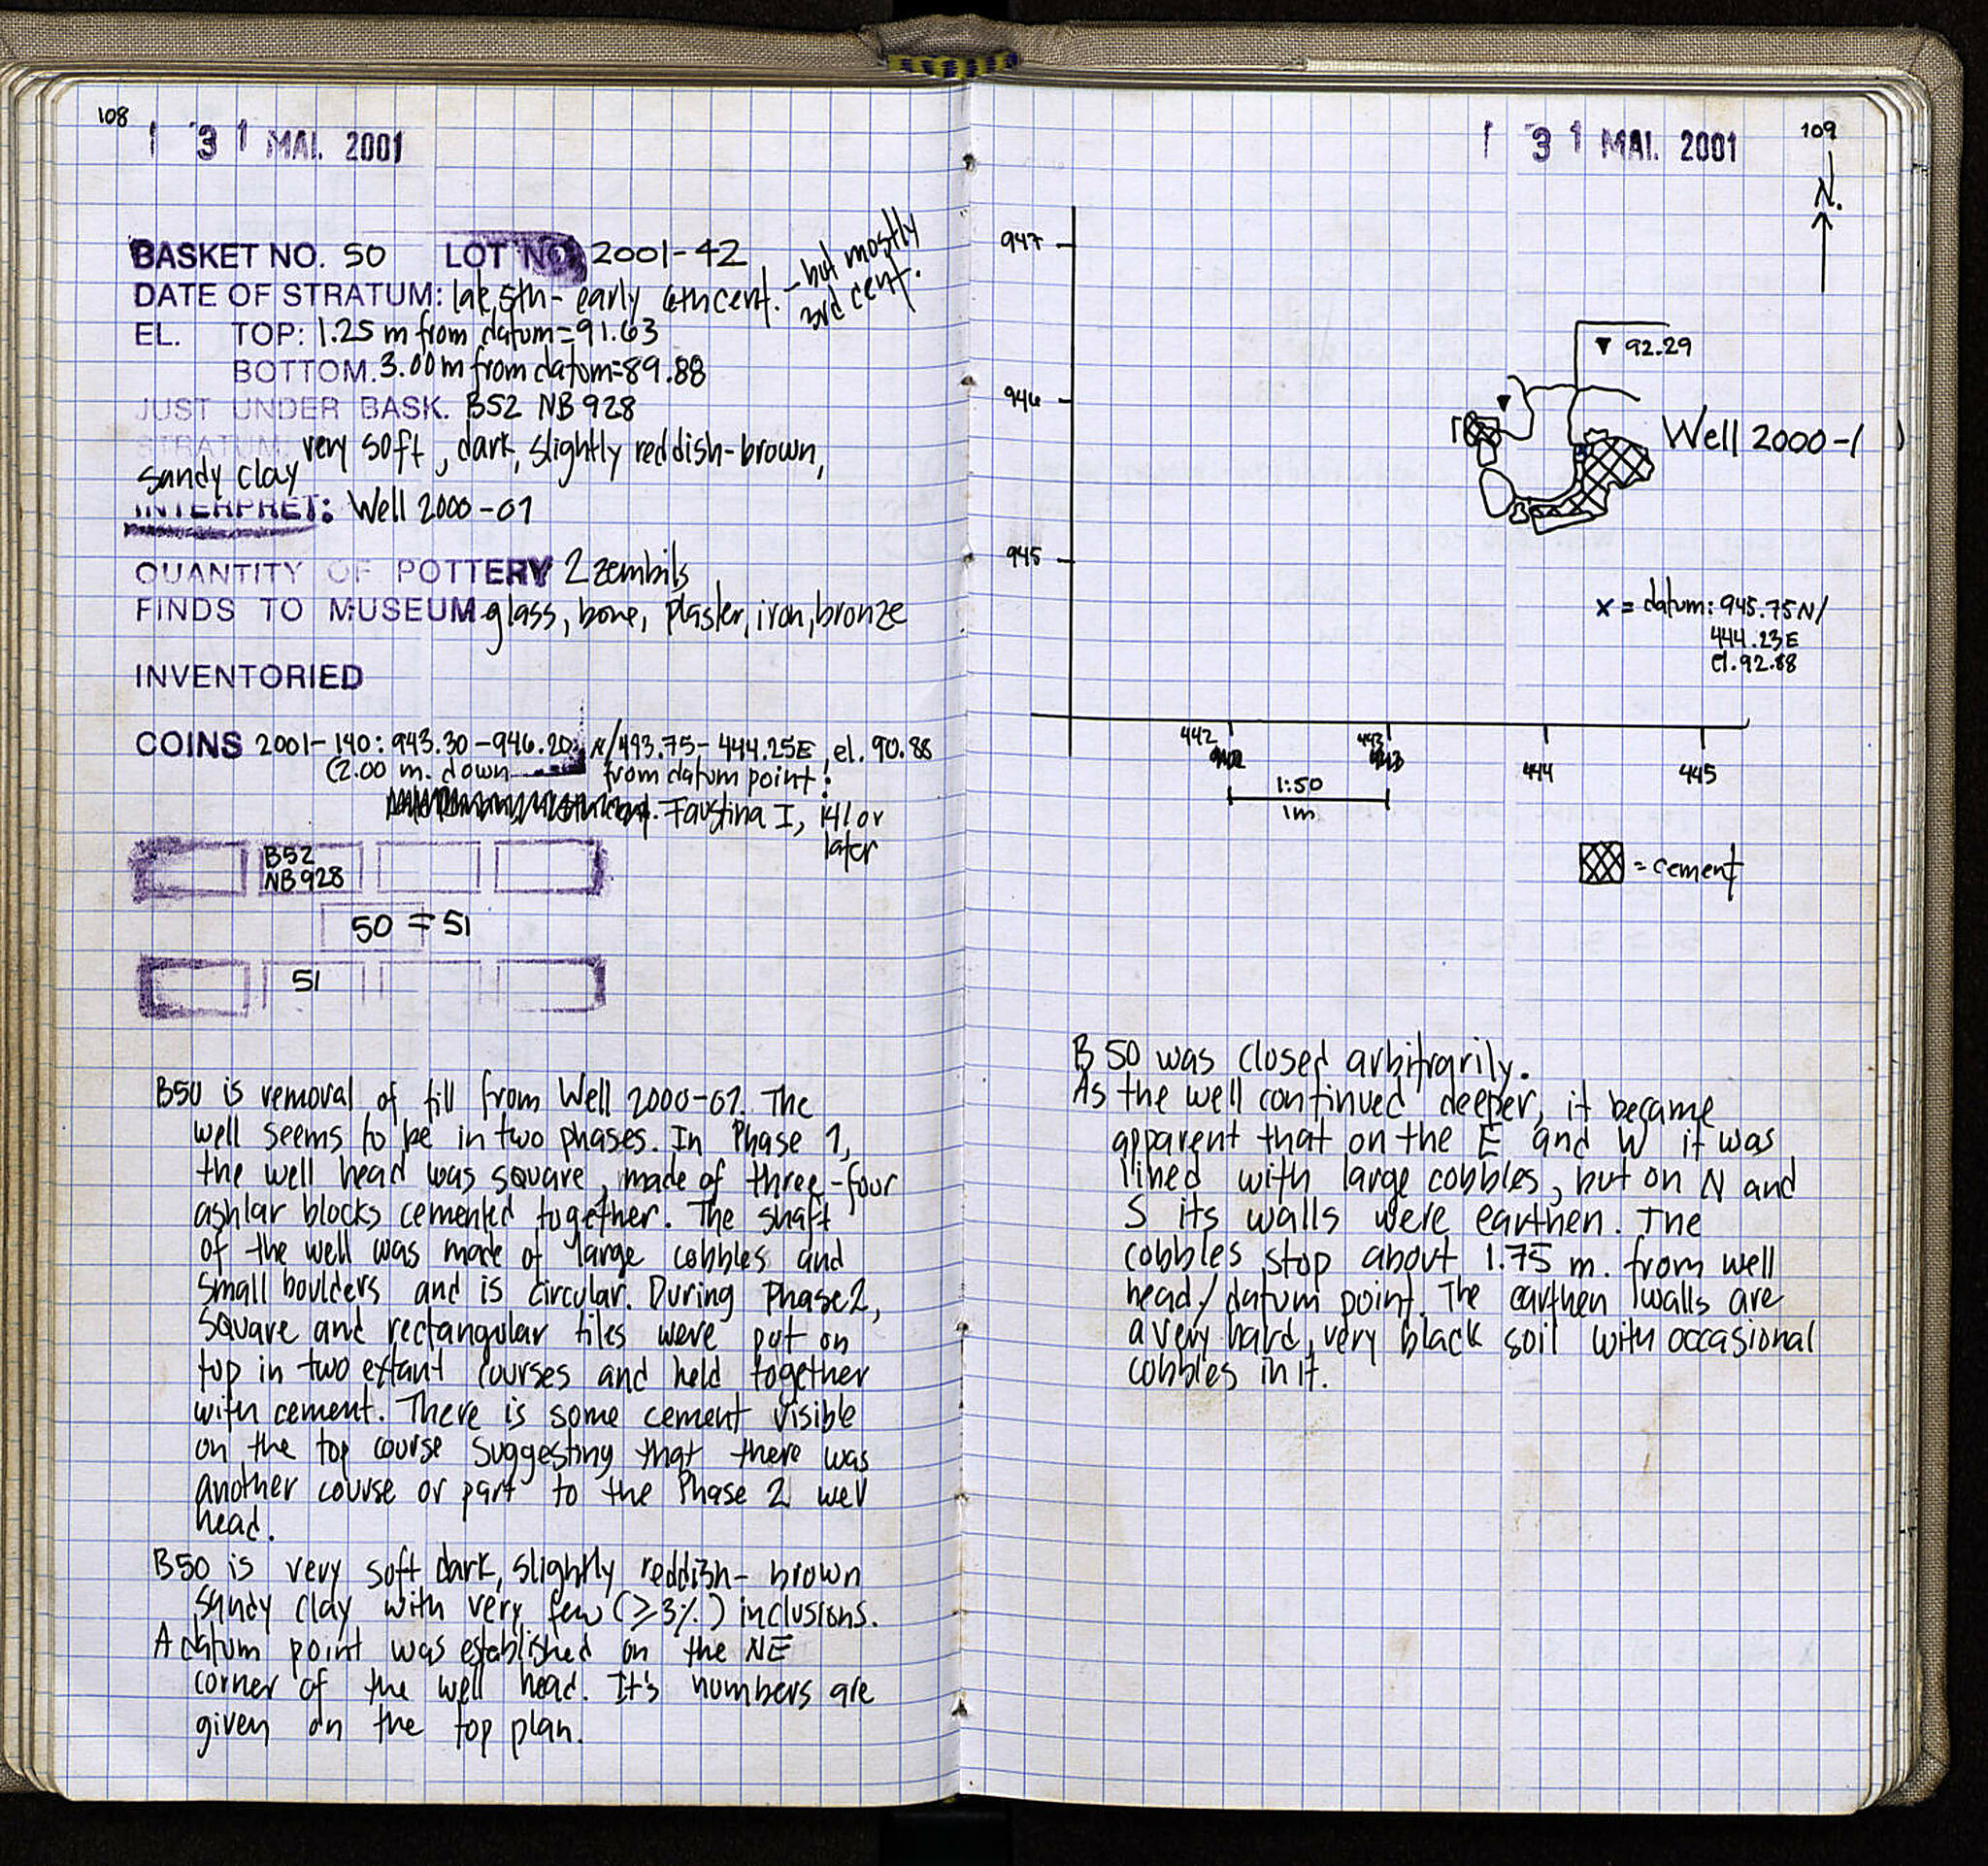 108
1 31 MAI. 2001
BASKET NO. 50 LOT NO 2001-42
DATE OF STRATUM: late 5th - early 6th cent. - but mostly
3rd cent.
EL. TOP: 1.25 m from datum = 91.63
BOTTOM. 3.00 m from datum = 89.88
JUST UNDER BASK. B52 NB 928
STRATUM: very soft, dark, slightly reddish-brown,
sandy clay
INTERPRET: Well 2000-01
QUANTITY OF POTTERY 2 zembils
FINDS TO MUSEUM glass, bone, plaster, iron, bronze
INVENTORIED
COINS 2001-140: 943.30-946.20 N/443.75-444.25E, el. 90.88
(2.00 m. down from datum point:
Faustina I, 141 or
later
B52
NB 928
50 = 51
51
B50 is removal of fill from Well 2000-01. The
well seems to be in two phases. In Phase 1,
the well head was square, made of three-four
ashlar blocks cemented together. The shaft
of the well was made of large cobbles and
small boulders and is circular. During Phase 2,
square and rectangular tiles were put on
top in two extant courses and held together
with cement. There is some cement visible
on the top course suggesting that there was
another course or part to the Phase 2 well
head.
B50 is very soft dark, slightly reddish-brown
sandy clay with very few (≥3%) inclusions.
A datum point was established on the NE
corner of the well head. It's numbers are
given on the top plan.
1 31 MAI. 2001
109
N.
947
946
945
92.29
Well 2000-1
x = datum: 945.75N/
444.23E
el. 92.88
442
443
444
445
1:50
1m
= cement
B 50 was closed arbitrarily.
As the well continued deeper, it became
apparent that on the E and W it was
lined with large cobbles, but on N and
S its walls were earthen. The
cobbles stop about 1.75 m. from well
head/datum point. The earthen walls are
a very hard, very black soil with occasional
cobbles in it.